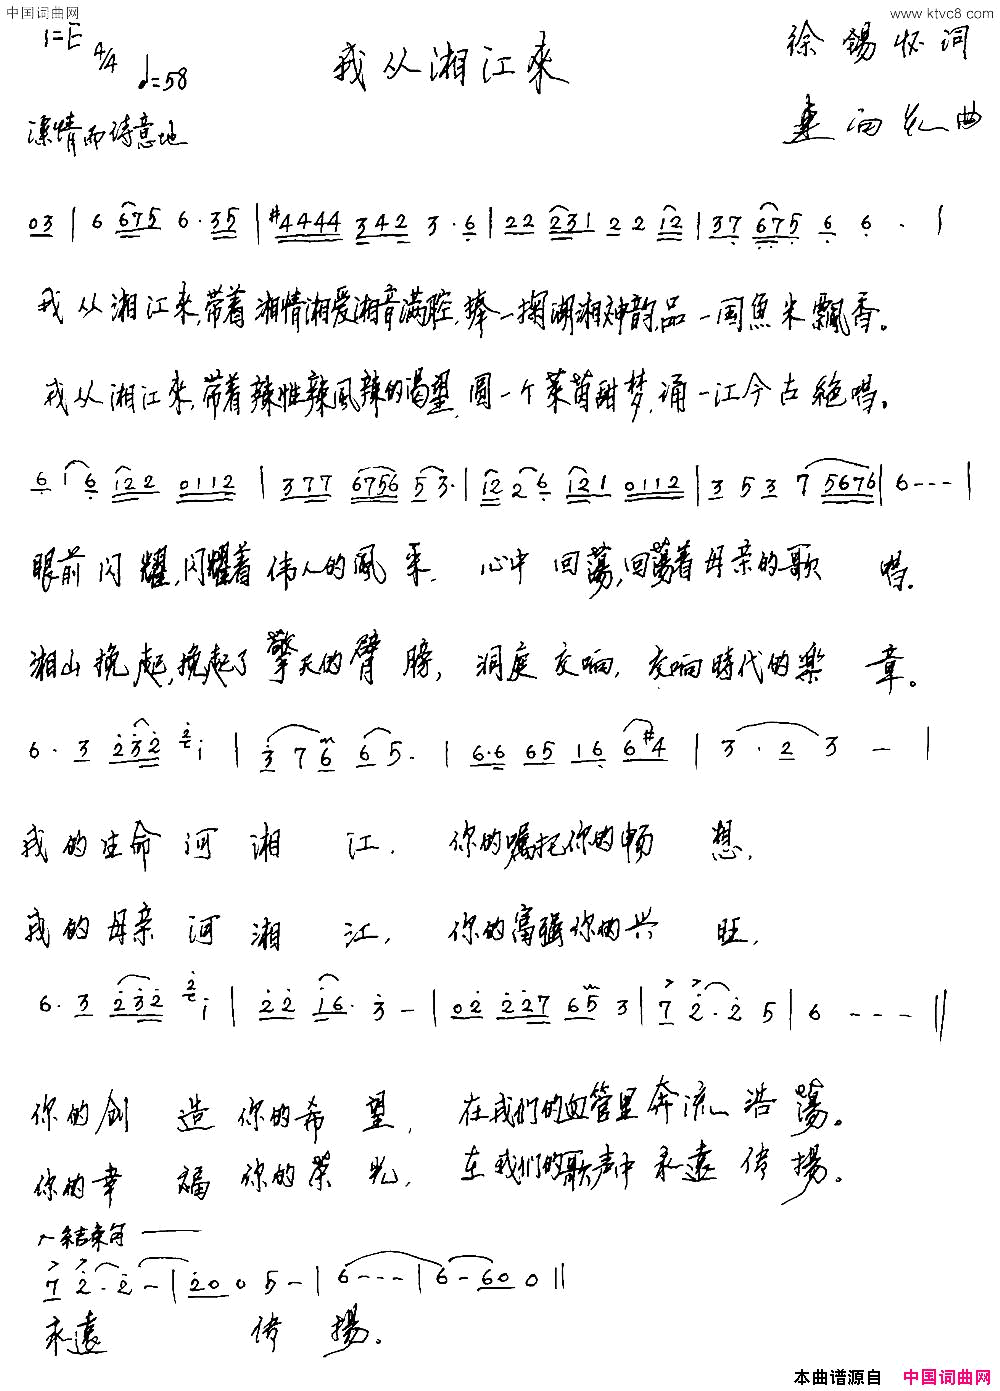 中国词曲网 www.ktvc8.com
1=E 4/4 ♩=58 我从湘江來 徐锡怀词
深情而诗意地 曲
03 | 6 675 6·35 | #4444 342 3·6 | 22 231 22 12 | 37 675 6 6 · |
我从湘江来,带着湘情湘爱湘音满腔,捧一掬湖湘神韵,品一国魚米飄香。
我从湘江来,带着辣性辣風辣的渴望,圆一个莱茵甜梦,诵一江今古絕唱。
6 1 6 122 0112 | 377 6756 53· | 12 2 6 121 0112 | 3 5 3 7 5676 | 6 - - - |
眼前闪耀,闪耀着伟人的風采,心中回蕩,回蕩着母亲的歌唱。
湘山挽起,挽起了擎天的臂膀,洞庭交响,交响時代的樂章。
6· 3 232 2 1 | 3 7 6 6 5· | 6·6 65 16 6#4 | 3·2 3 - |
我的生命河湘江,你的嘱托你的畅想,
我的母亲河湘江,你的富强你的兴旺,
6· 3 232 2 1 | 22 16· 3 - | 02 227 65 3 | 7 2·2 5 | 6 - - - ||
你的创造你的希望,在我们的血管里奔流浩蕩。
你的幸福你的荣光,在我们的歌声中永遠传揚。
结束句
7 2·2 - | 20 0 5 - | 6 - - - | 6 - 60 0 ||
永遠传揚。
本曲谱源自 中国词曲网